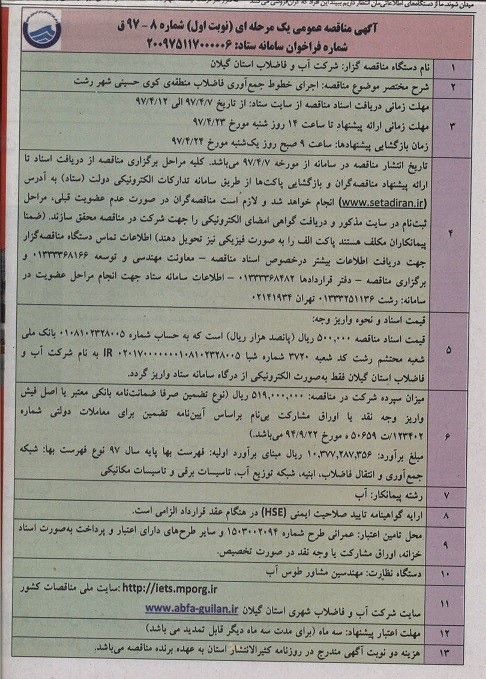 آگهی مناقصه عمومی یک مرحله ای (نوبت اول) شماره ۸ - ۹۷ ق
شماره فراخوان سامانه ستاد: ۲۰۰۹۷۵۱۱۷۰۰۰۰۰۶
۱ نام دستگاه مناقصه گزار: شرکت آب و فاضلاب استان گیلان
۲ شرح مختصر موضوع مناقصه: اجرای خطوط جمع‌آوری فاضلاب منطقه‌ی کوی حسینی شهر رشت
مهلت زمانی دریافت اسناد مناقصه از سایت ستاد: از تاریخ ۹۷/۴/۷ الی ۹۷/۴/۱۲
۳ مهلت زمانی ارائه پیشنهاد تا ساعت ۱۴ روز شنبه مورخ ۹۷/۴/۲۳
زمان بازگشایی پیشنهادها: ساعت ۹ صبح روز یک‌شنبه مورخ ۹۷/۴/۲۴
تاریخ انتشار مناقصه در سامانه از مورخه ۹۷/۴/۷ می‌باشد. کلیه مراحل برگزاری مناقصه از دریافت اسناد تا
ارائه پیشنهاد مناقصه‌گران و بازگشایی پاکت‌ها از طریق سامانه تدارکات الکترونیکی دولت (ستاد) به آدرس
(www.setadiran.ir) انجام خواهد شد و لازم است مناقصه‌گران در صورت عدم عضویت قبلی، مراحل
ثبت‌نام در سایت مذکور و دریافت گواهی امضای الکترونیکی را جهت شرکت در مناقصه محقق سازند. (ضمنا
۴ پیمانکاران مکلف هستند پاکت الف را به صورت فیزیکی نیز تحویل دهند) اطلاعات تماس دستگاه مناقصه‌گزار
جهت دریافت اطلاعات بیشتر درخصوص اسناد مناقصه - معاونت مهندسی و توسعه ۰۱۳۳۳۳۶۸۱۶۶ و
برگزاری مناقصه - دفتر قراردادها ۰۱۳۳۳۳۶۸۴۸۲ - اطلاعات سامانه ستاد جهت انجام مراحل عضویت در
سامانه: رشت ۰۱۳۳۳۲۵۱۱۳۶ تهران ۰۲۱۴۱۹۳۴
قیمت اسناد و نحوه واریز وجه:
قیمت اسناد مناقصه ۵۰۰,۰۰۰ ریال (پانصد هزار ریال) است که به حساب شماره ۰۱۰۸۱۰۲۳۲۸۰۰۵ بانک ملی
۵ شعبه محتشم رشت کد شعبه ۳۷۲۰ شماره شبا IR ۰۲۰۱۷۰۰۰۰۰۰۰۱۰۸۱۰۲۳۲۸۰۰۵ به نام شرکت آب و
فاضلاب استان گیلان فقط به‌صورت الکترونیکی از درگاه سامانه ستاد واریز گردد.
میزان سپرده شرکت در مناقصه: ۵۱۹,۰۰۰,۰۰۰ ریال (نوع تضمین صرفا ضمانت‌نامه بانکی معتبر یا اصل فیش
واریز وجه نقد یا اوراق مشارکت بی‌نام براساس آیین‌نامه تضمین برای معاملات دولتی شماره
۶ ۱۲۳۴۰۲/ت ۵۰۶۵۹ ه مورخ ۹۴/۹/۲۲ می‌باشد.)
مبلغ برآورد: ۱۰,۳۷۷,۲۸۷,۳۵۶ ریال مبنای برآورد اولیه: فهرست بها پایه سال ۹۷ نوع فهرست بها: شبکه
جمع‌آوری و انتقال فاضلاب، ابنیه، شبکه توزیع آب، تاسیسات برقی و تاسیسات مکانیکی
۷ رشته پیمانکار: آب
۸ ارایه گواهینامه تایید صلاحیت ایمنی (HSE) در هنگام عقد قرارداد الزامی است.
۹ محل تامین اعتبار: عمرانی طرح شماره ۱۵۰۳۰۰۲۰۹۴ و سایر طرح‌های دارای اعتبار و پرداخت به‌صورت اسناد
خزانه، اوراق مشارکت یا وجه نقد در صورت تخصیص.
۱۰ دستگاه نظارت: مهندسین مشاور طوس آب
سایت ملی مناقصات کشور: http://iets.mporg.ir
۱۱ سایت شرکت آب و فاضلاب شهری استان گیلان www.abfa-guilan.ir
۱۲ مهلت اعتبار پیشنهاد: سه ماه (برای مدت سه ماه دیگر قابل تمدید می باشد)
۱۳ هزینه دو نوبت آگهی مندرج در روزنامه کثیرالانتشار استان به عهده برنده مناقصه می‌باشد.